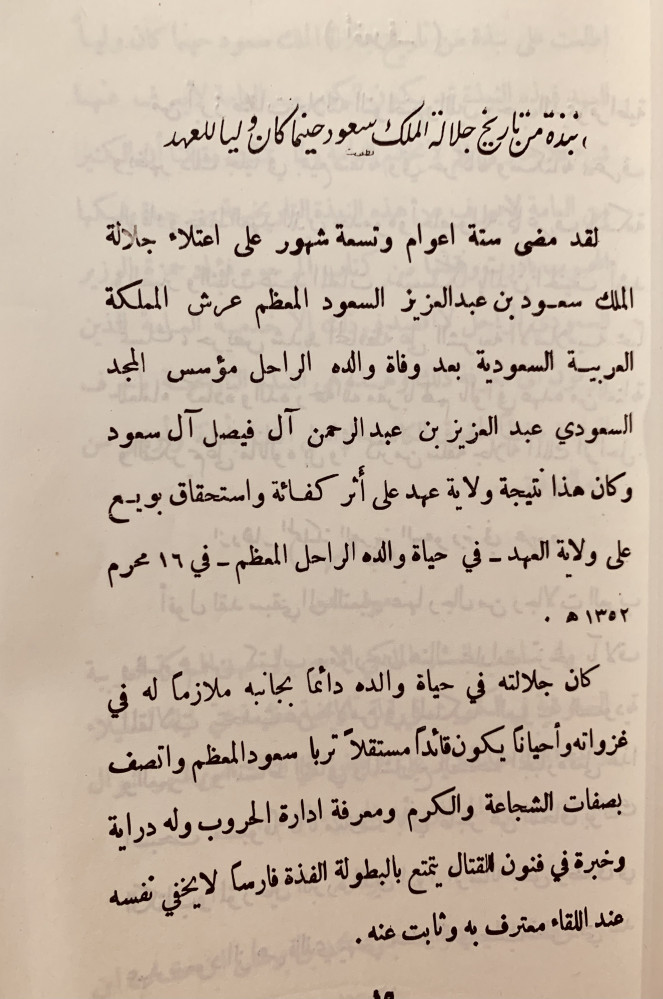 نبذة من تاريخ جلالة الملك سعود حينما كان وليا للعهد
لقد مضى ستة اعوام وتسعة شهور على اعتلاء جلالة
الملك سعود بن عبدالعزيز السعود المعظم عرش المملكة
العربية السعودية بعد وفاة والده الراحل مؤسس المجد
السعودي عبد العزيز بن عبدالرحمن آل فيصل آل سعود
وكان هذا نتيجة ولاية عهد على أثر كفائة واستحقاق بويع
على ولاية العهد - في حياة والده الراحل المعظم - في ١٦ محرم
١٣٥٢ ه .
كان جلالته في حياة والده دائما بجانبه ملازماً له في
غزواته وأحياناً يكون قائداً مستقلاً تربا سعود المعظم واتصف
بصفات الشجاعة والكرم ومعرفة ادارة الحروب وله دراية
وخبرة في فنون القتال يتمتع بالبطولة الفذة فارساً لا يخفي نفسه
عند اللقاء معترف به وثابت عنه .